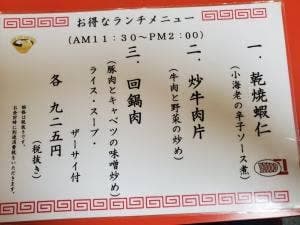 お得なランチメニュー
(AM11:30~PM2:00)
一、乾焼蝦仁
(小海老の辛子ソース煮)
二、炒牛肉片
(牛肉と野菜の炒め)
三、回鍋肉
(豚肉とキャベツの味噌炒め)
ライス・スープ・
ザーサイ付
各 九二五円
(税抜き)
価格は税抜きです。